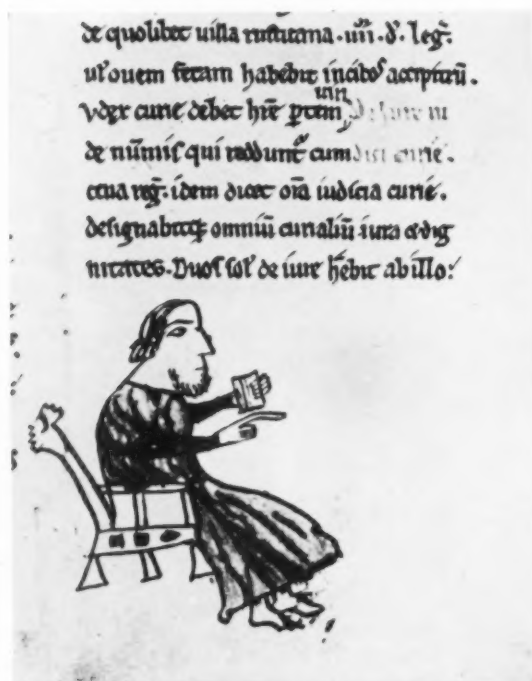 de quolibet uilla rusticana .iiii. d'. leg̃.
uł ouem fetam habebit in cibos accipitrũ.
vdex curie debet hr̃e ptem
iiii
De iure iu
de nũmis qui reddunt᷑ cum dicis curie.
ad reg̃. idem dicet oĩa iudicia curie.
designabitq; omniũ curialiũ iura & dig
nitates. Duos sol' de iure h̃ebit ab illo: